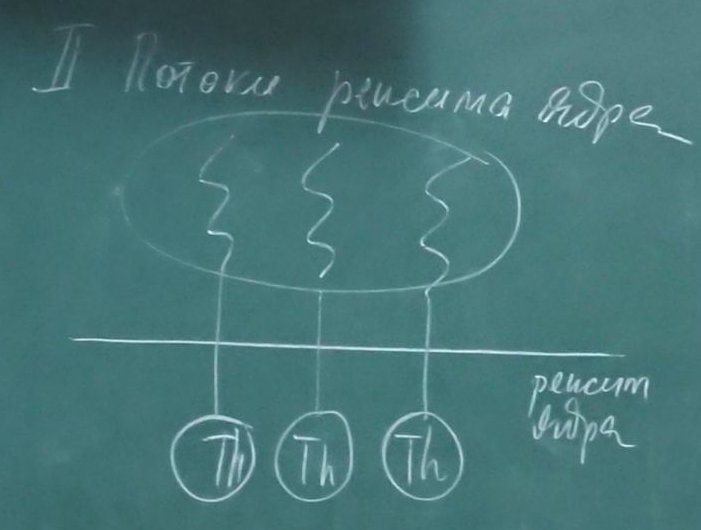 II Потоки режима ядра
режим
ядра
Th Th Th